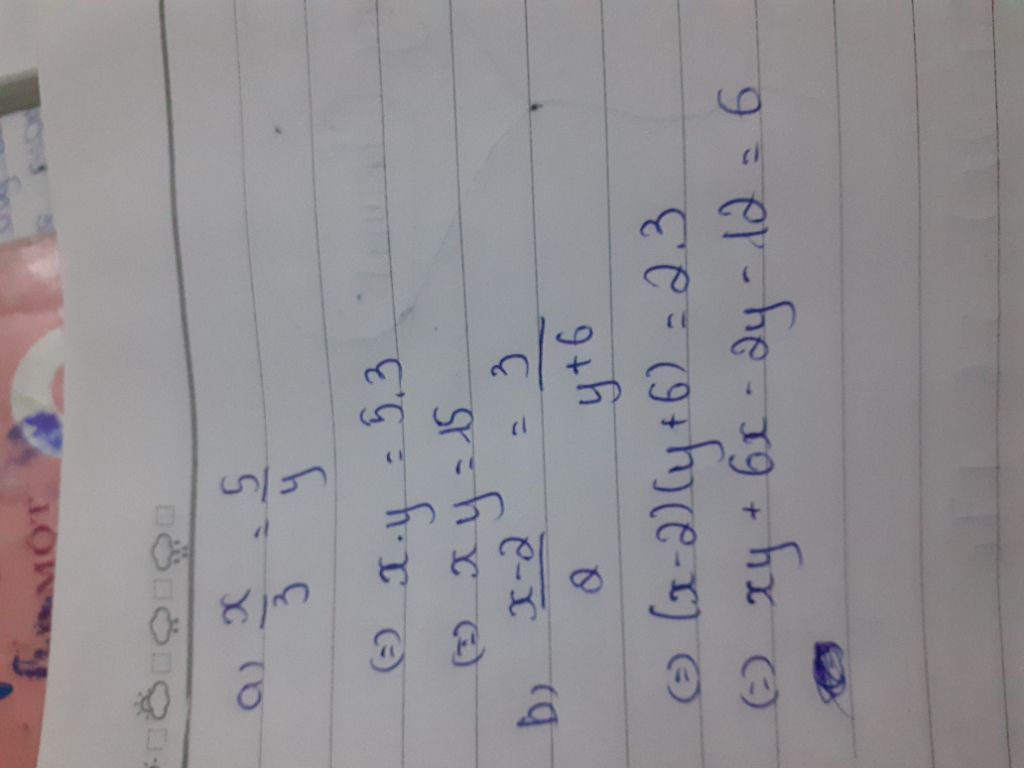 a) x/3 = 5/y
(=) x.y = 5.3
(=) xy = 15
b) x-2/2 = 3/y+6
(=) (x-2)(y+6) = 2.3
(=) xy + 6x - 2y - 12 = 6
MOT